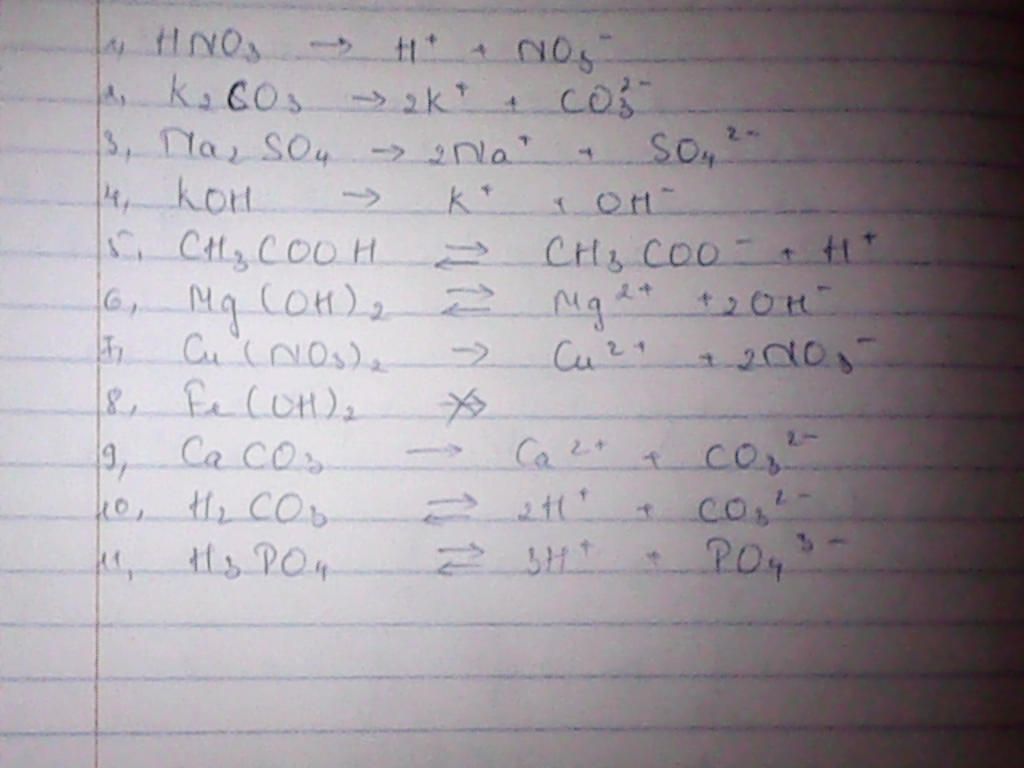 1, HNO₃ → H⁺ + NO₃⁻
2, K₂CO₃ → 2K⁺ + CO₃²⁻
3, Na₂SO₄ → 2Na⁺ + SO₄²⁻
4, KOH → K⁺ + OH⁻
5, CH₃COOH ⇄ CH₃COO⁻ + H⁺
6, Mg(OH)₂ ⇄ Mg²⁺ + 2OH⁻
7, Cu(NO₃)₂ → Cu²⁺ + 2NO₃⁻
8, Fe(OH)₂ ↛
9, CaCO₃ → Ca²⁺ + CO₃²⁻
10, H₂CO₃ ⇄ 2H⁺ + CO₃²⁻
11, H₃PO₄ ⇄ 3H⁺ + PO₄³⁻